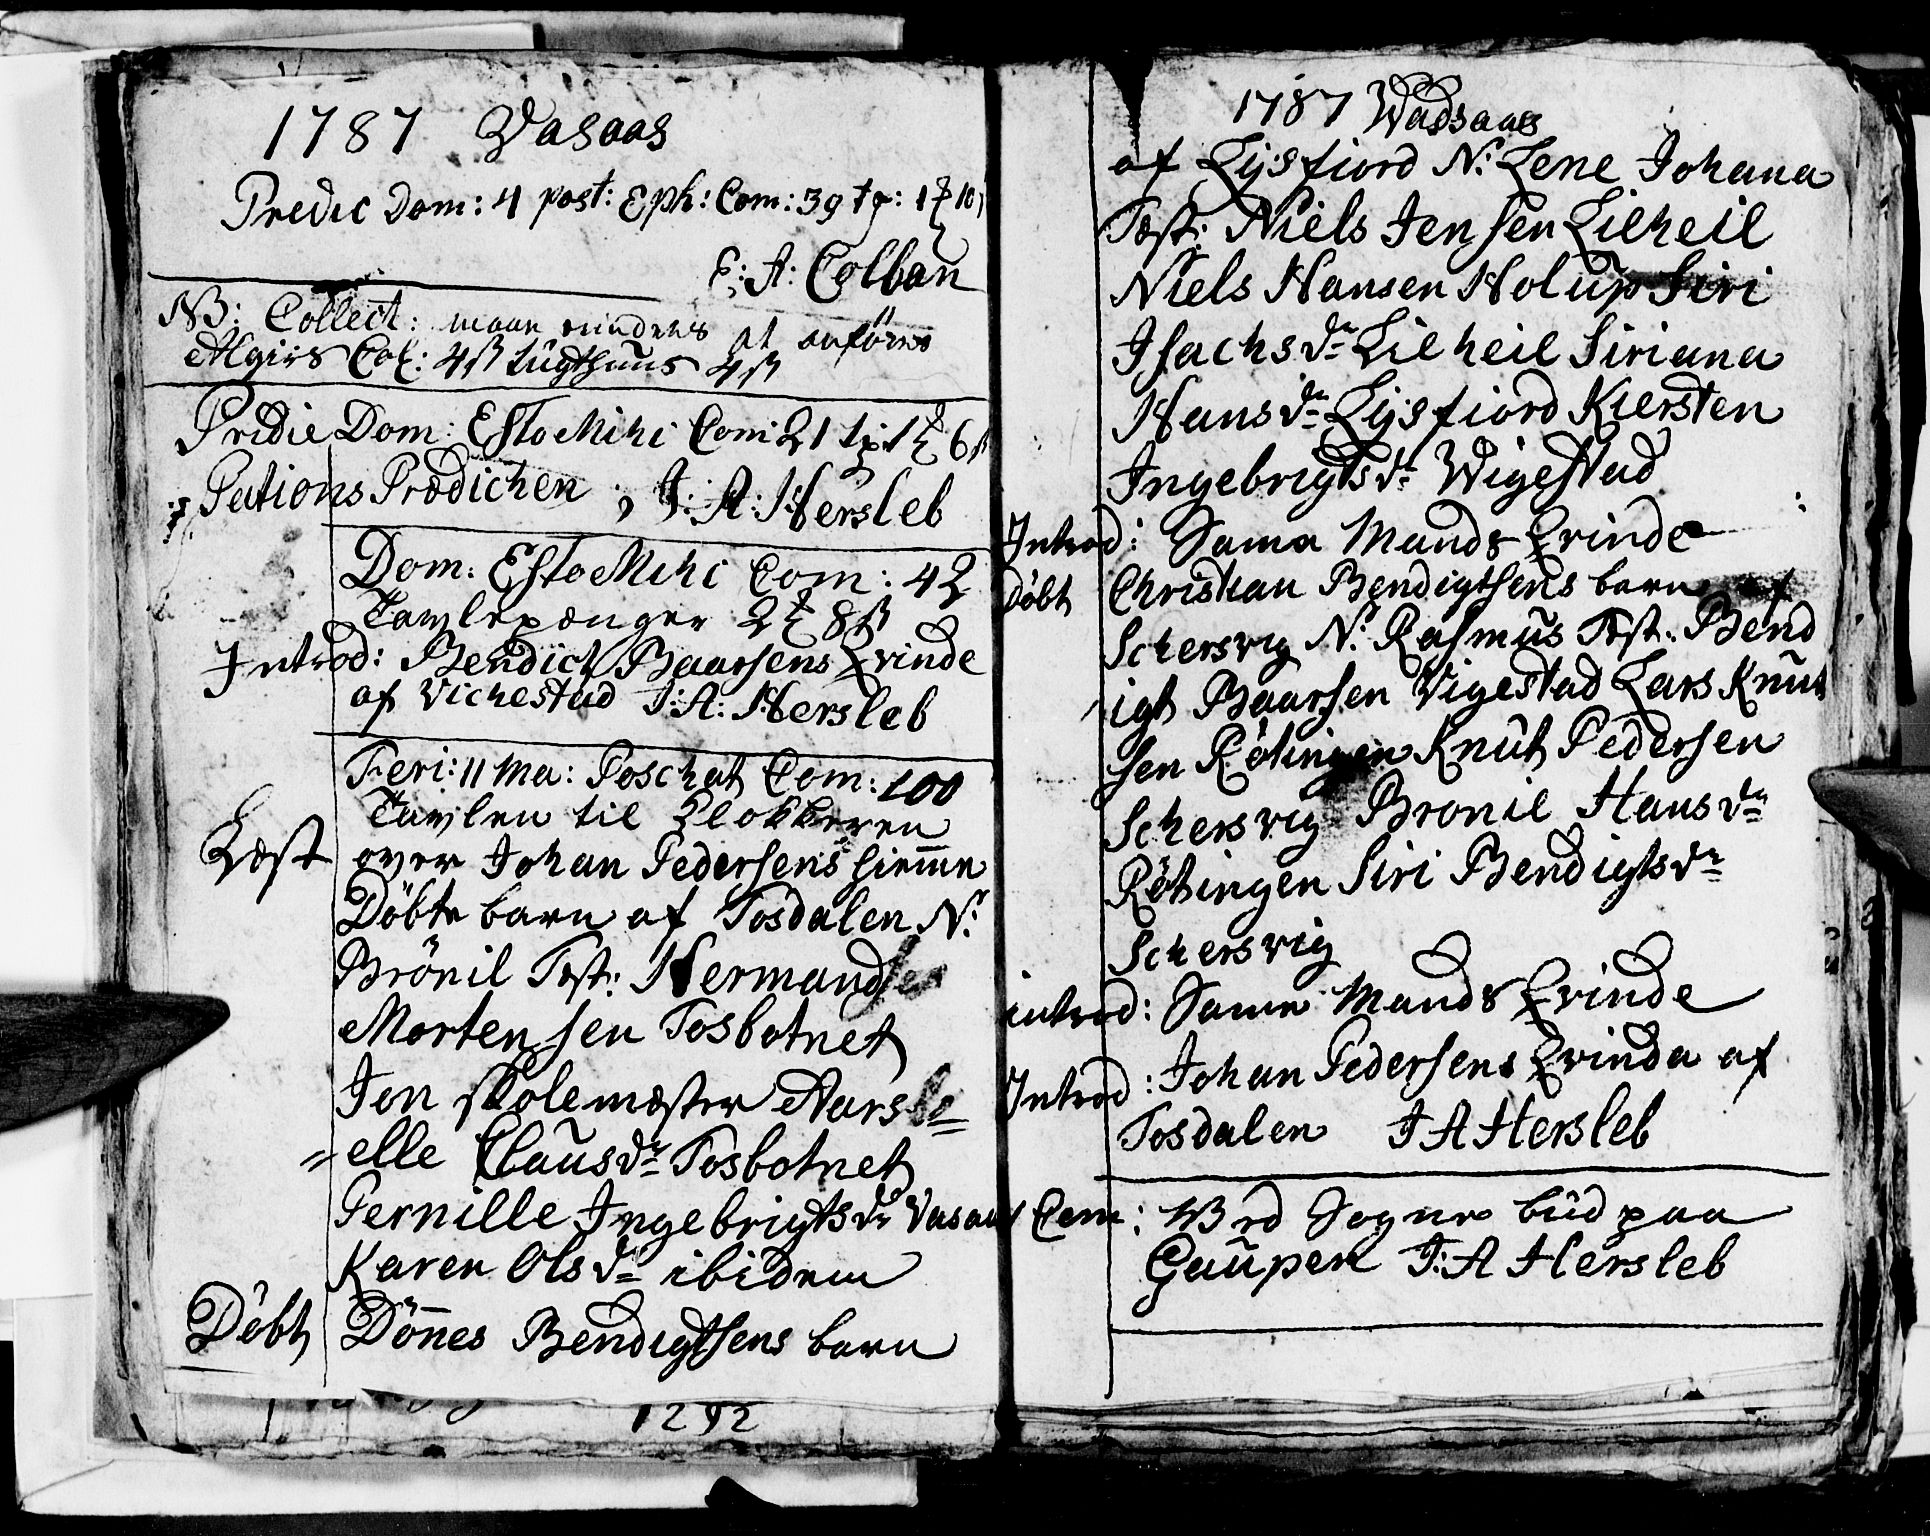 1787 Vasaas
Predic Dom: 4 post: Eph: Com: 39 tp: 1
E: A: Colban
NB: Collect: maae erindres at anføres
Algirs Col: 4ß tugthuus 4ß
Pridie Dom: Esto Mihi Com: 21 tp: 1 6ß
Pations Prædichen J: A: Hersleb
Dom: Esto Mihi Com: 42
Tavlepænger 2 8ß
Introd: Bendict Baarsens Qvinde
af Vichestad J: A: Hersleb
Feri: 11 ma: Poschat Com: 100
Tavlen til Klokkeren
Læst over Johan Pedersens hiemme
Döbte barn af Tosdalen N:
Brönil Test: Hermand
Mortensen Tosbotnet
Jon skolemester Aars
elle Clausdr Tosbotnet
Pernille Ingebrigtsdr Vasaas
Karen Olsdr ibidem
Döbt Dönnes Bendigtsens barn
1787 Wadsaas
af Lysfiord N: Lene Johana
Test: Niels Jensen Lilheil
Niels Hansen Holup Siri
Isachsdr Lilheil Siriana
Hansdr Lysfiord Kiersten
Ingebrigtsdr Wigestad
Introd: Sama Mands Qvinde
Döbt Christian Bendigtsens barn af
Schersvig N: Rasmus Test: Bend
igt Baarsen Vigestad Lars Knut
sen Rötingen Knut Pedersen
Schersvig Bronil Hansdr
Rötingen Siri Bendigtsdr
Schersvig
introd: Same Mands Qvinde
Introd: Johan Pedersens Qvinda af
Tosdalen J A Hersleb
Com: Sogne bud paa
Gaupen J: A Hersleb